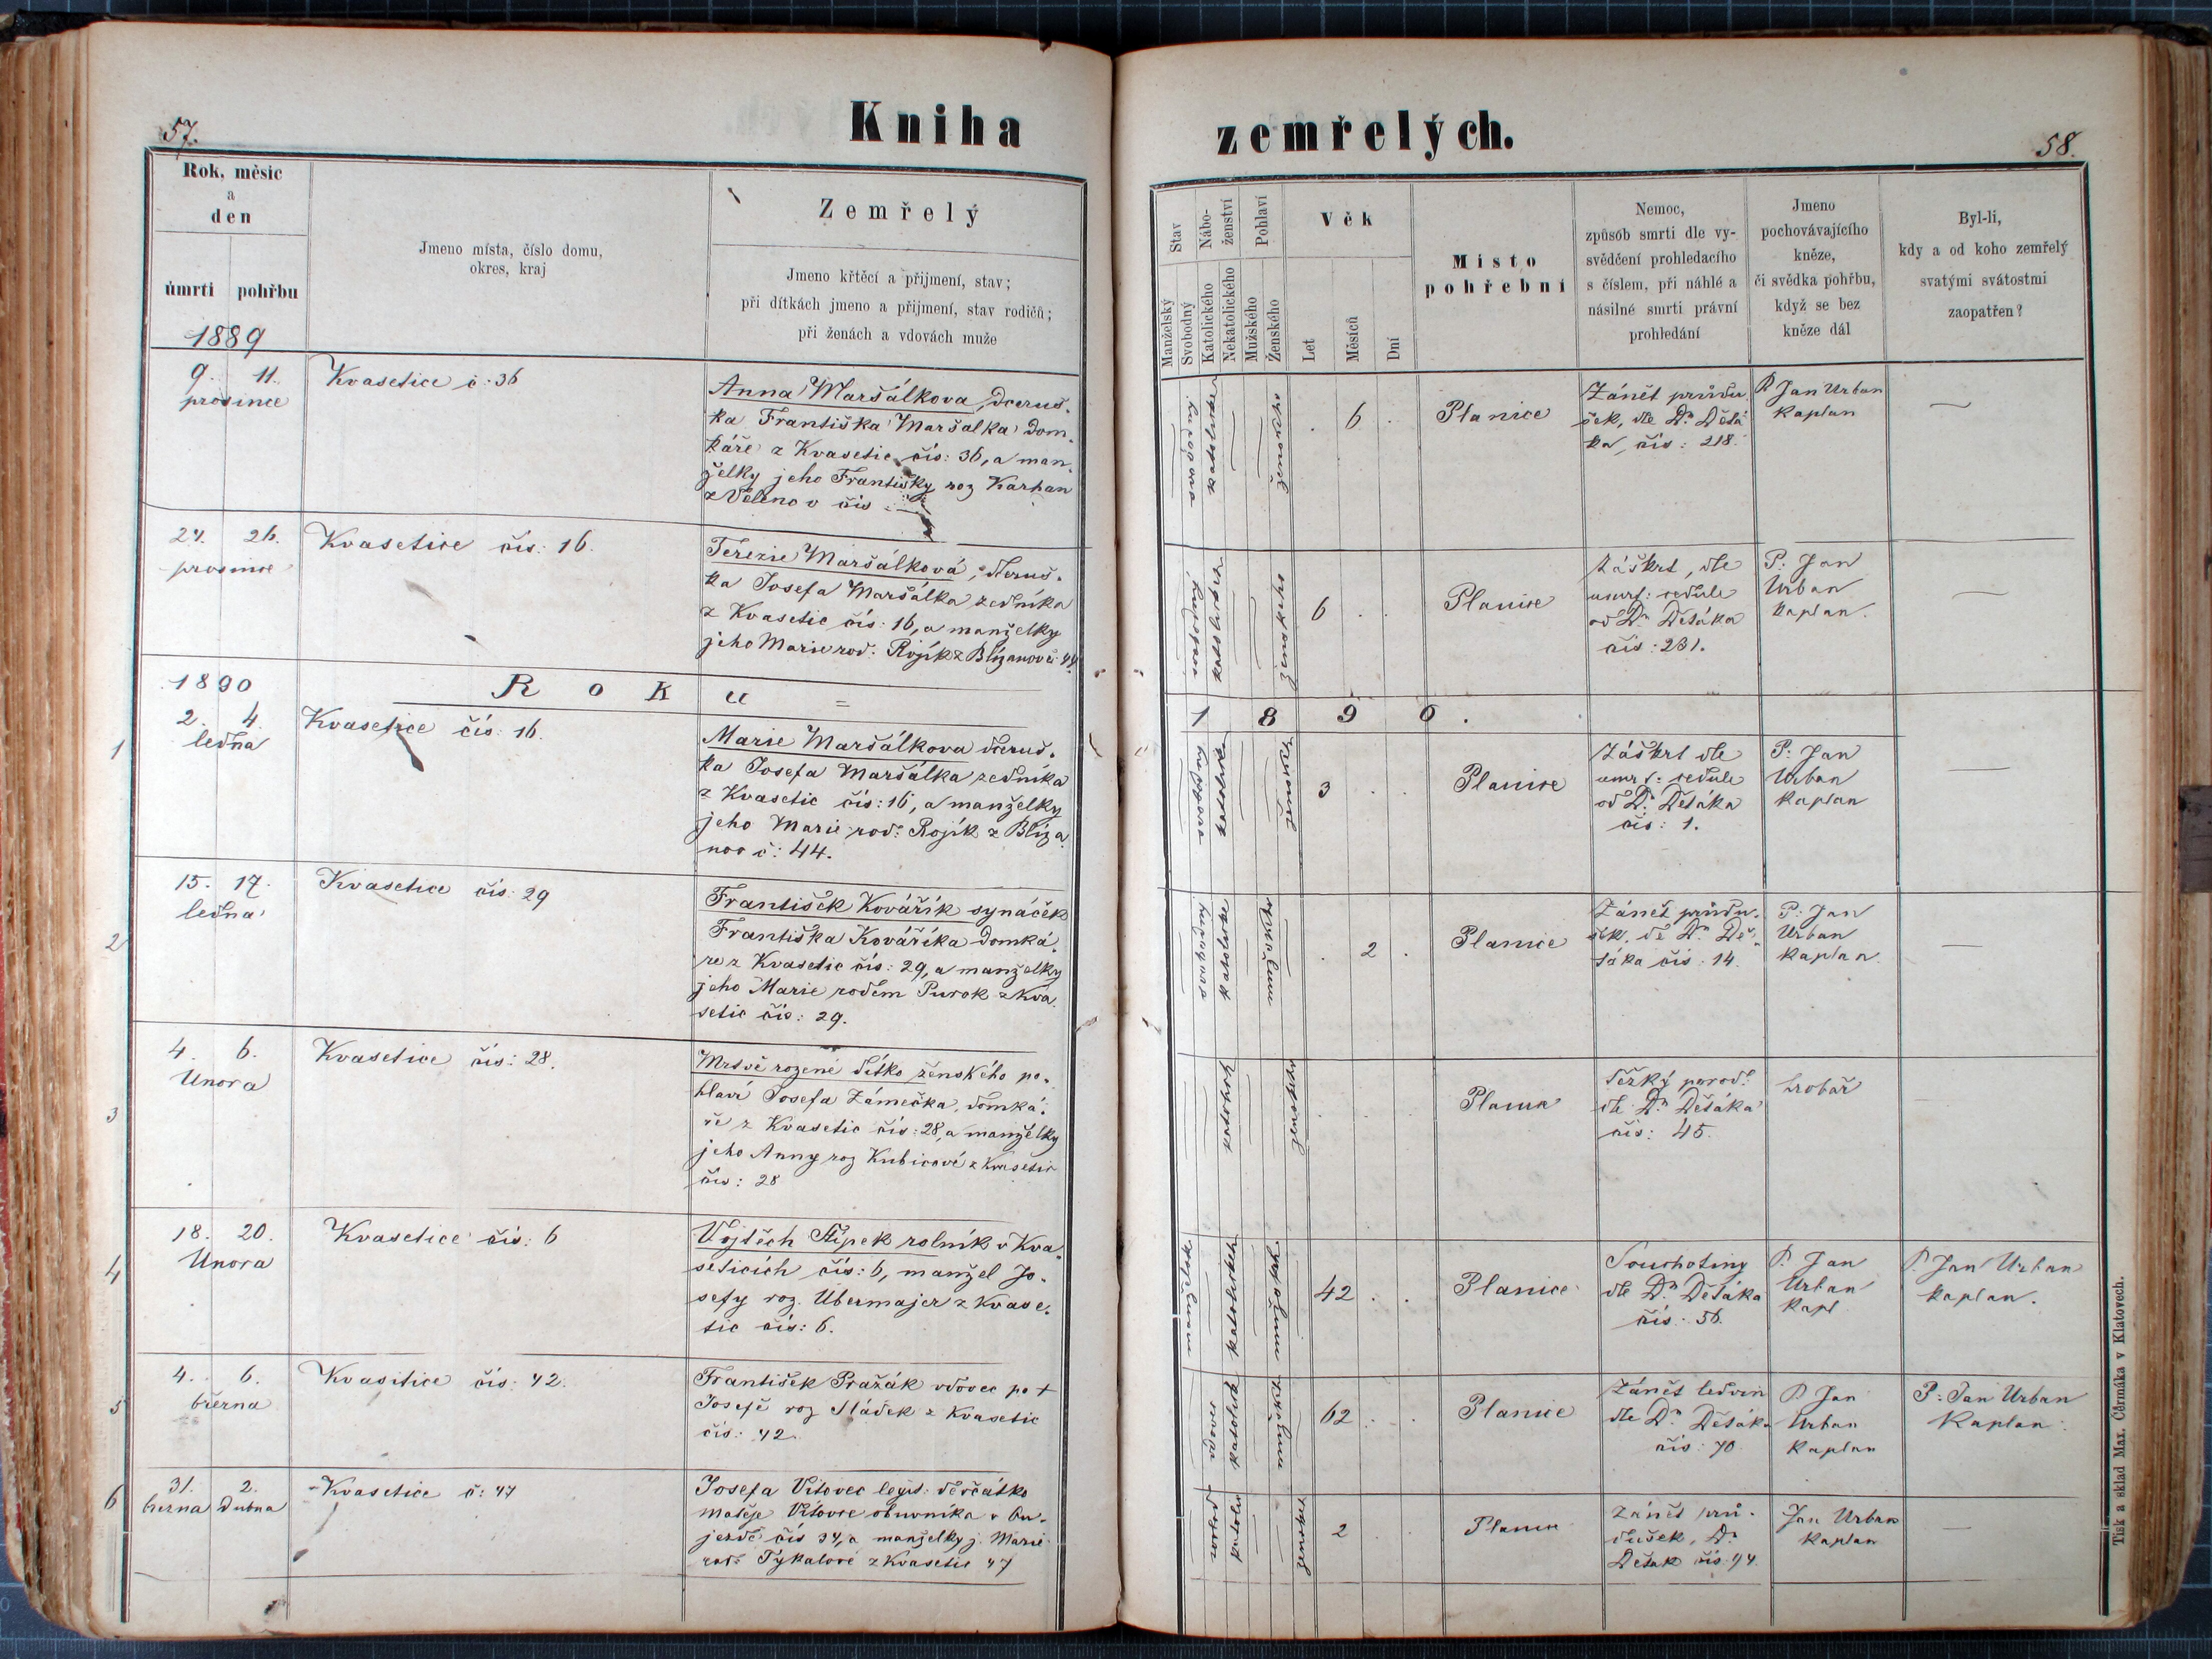 57.
Kniha
zemřelých.
58.
Rok, měsíc
a
den
úmrtí
pohřbu
Jmeno místa, číslo domu,
okres, kraj
Zemřelý
Jmeno křtěcí a přijmení, stav;
při dítkách jmeno a přijmení, stav rodičů;
při ženách a vdovách muže
Stav
Manželský
Svobodný
Nábo-
ženství
Katolického
Nekatolického
Pohlaví
Mužského
Ženského
Věk
Let
Měsíců
Dní
Místo
pohřební
Nemoc,
způsob smrti dle vy-
svědčení prohledacího
s číslem, při náhlé a
násilné smrti právní
prohledání
Jmeno
pochovávajícího
kněze,
či svědka pohřbu,
když se bez
kněze dál
Byl-li,
kdy a od koho zemřelý
svatými svátostmi
zaopatřen?
1889
9. 11.
prosince
Kvasetice č: 36
Anna Maršálkova, dceruš-
ka Františka Maršalka dom-
káře z Kvasetic čís: 36, a man-
želky jeho Františky roz Karban
z Velenov čís
svobodná
katolické
ženského
6
Planice
Zánět průdu-
šek, dle Dr. Dešá-
ka, čís: 218.
P Jan Urban
Kaplan
—
24. 26.
prosince
Kvasetice čís: 16.
Terezie Maršálková, dceruš-
ka Josefa Maršálka zedníka
z Kvasetic čís: 16, a manželky
jeho Marie rod: Rojík z Blížanov č: 44.
ženského
6
Planice
Záškrt, dle
úmrt: cedule
od Dr. Dešáka
čís: 231.
P: Jan
Urban
Kaplan.
—
1890
Roku
1890.
1
2. 4.
ledna
Kvasetice čís: 16.
Marie Maršálkova dceruš-
ka Josefa Maršálka zedníka
z Kvasetic čís: 16, a manželky
jeho Marie rod: Rojík z Blíža
nov č: 44.
svobodná
katolické
ženské
3
Planice
Záškrt dle
úmrt: cedule
od Dr. Dešáka
čís: 1.
P: Jan
Urban
Kaplan
—
2
15. 17.
ledna
Kvasetice čís: 29
František Kovářík synáček
Františka Kovářika domká-
ře z Kvasetic čís: 29, a manželky
jeho Marie rodem Purok z Kva-
setic čís: 29.
svobodný
katolické
mužského
2
Planice
Zánět průdu-
šek, dle Dr. De-
šáka čís: 14.
P: Jan
Urban
Kaplan.
—
3
4. 6.
Unora
Kvasetice čís: 28.
Mrtvě rozené dítko ženského po-
hlaví Josefa Zámečka, domká-
ře z Kvasetic čís: 28, a manželky
jeho Anny roz Kubicové z Kvasetic
čís: 28
ženského
Planice
Těžký porod
dle Dr. Dešáka
čís: 45.
hrobař
—
4
18. 20.
Unora
Kvasetice čís: 6
Vojtěch Šípek rolník v Kva-
seticích čís: 6, manžel Jo-
sefy roz. Ubermajer z Kvase-
tic čís: 6.
katolického
mužského
42
Planice
Souchotiny
dle Dr. Dešáka
čís: 56.
P. Jan
Urban
Kapl
P. Jan Urban
Kaplan.
5
4. 6.
března
Kvasetice čís: 42.
František Pražák vdovec po +
Josefě roz Sládek z Kvasetic
čís: 42.
vdovec
katolické
62
Planice
Zánět ledvin
dle Dr. Dešáka
čís: 70.
P Jan
Urban
Kaplan
P: Jan Urban
Kaplan.
6
31. 2.
března Dubna
Kvasetice č: 47
Josefa Vítovec legit: děvčátko
Matěje Vítovce obuvníka v Ou-
jezdě čís 34, a manželky j. Marie
rod: Tykalové z Kvasetic 47
ženské
2
Planice
Zánět prů-
dušek, Dr
Dešak čís: 94.
Jan Urban
Kaplan
—
Tisk a sklad Max. Čermáka v Klatovech.